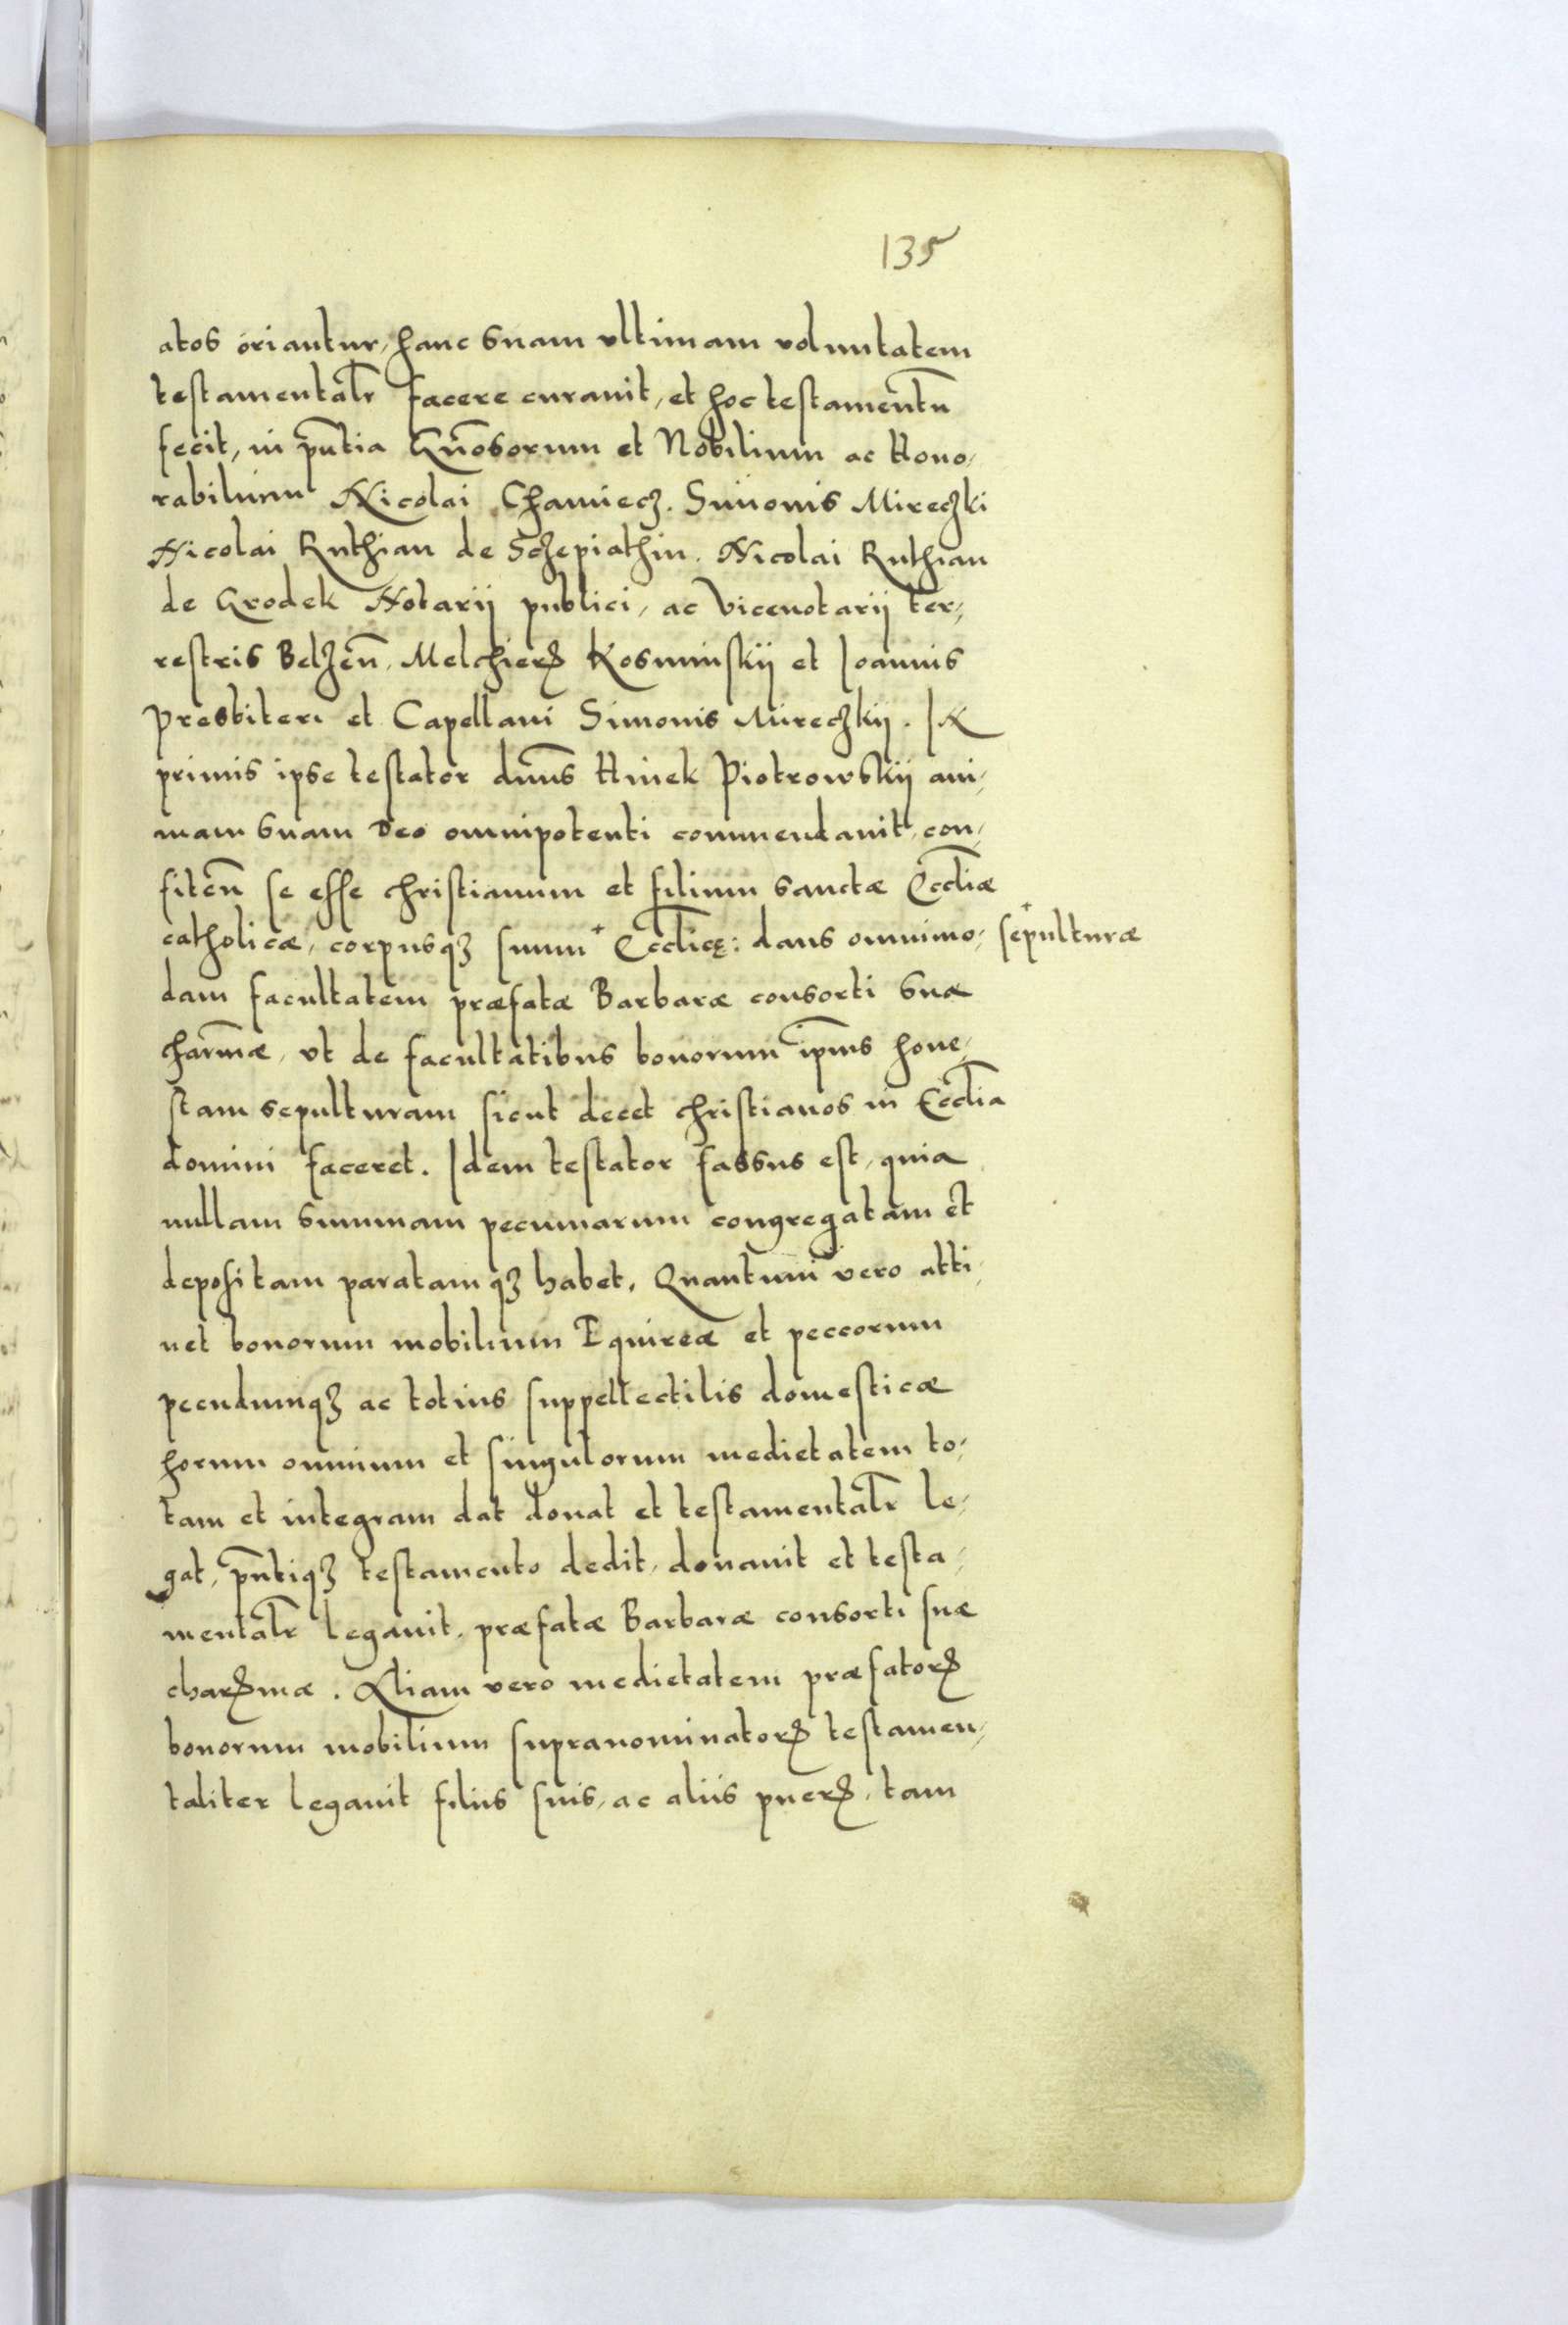 135
atos oriantur, hanc suam ultimam voluntatem
testamentalr̃ facere curavit, et hoc testamentũ
fecit, in pñtia Gñosorum et Nobilium ac Hono,
rabilium Nicolai Chamiecz. Simonis Mireczki
Nicolai Ruthian de Sczepiathin. Nicolai Ruthian
de Grodek Notarij publici, ac Vicenotarij ter,
restris Belzeñ. Melchierꝝ Kosminskij et Ioannis
Presbiteri et Capellani Simonis Mireczkij. IN
primis ipse testator dnũs Hinek Piotrowskij ani,
mam suam Deo omnipotenti commendavit, con,
fiteñ se esse christianum et filium sanctæ Eccliæ
catholicæ, corpusqꝫ suum + Ecclię: dans omnimo, + sepulturæ
dam facultatem præfatæ Barbaræ consorti suæ
charm̃æ, ut de facultatibus bonorum ipm̃s hone,
stam sepulturam sicut decet christianos in Ecclia
domini faceret. Idem testator fassus est, quia
nullam summam pecuniarum congregatam et
depositam paratamqꝫ habet. Quantum vero atti,
net bonorum mobilium Equireæ et peccorum
pecudumqꝫ ac totius suppellectilis domesticæ
horum omnium et singulorum medietatem to,
tam et integram dat donat et testamentalr̃ le,
gat, pñtiqꝫ testamento dedit, donavit et testa,
mentalr̃ legavit, præfatæ Barbaræ consorti suæ
charꝝmæ. Aliam vero medietatem præfatorꝝ
bonorum mobilium supranominatorꝝ testamen,
taliter legavit filiis suis, ac aliis puerꝝ, tam